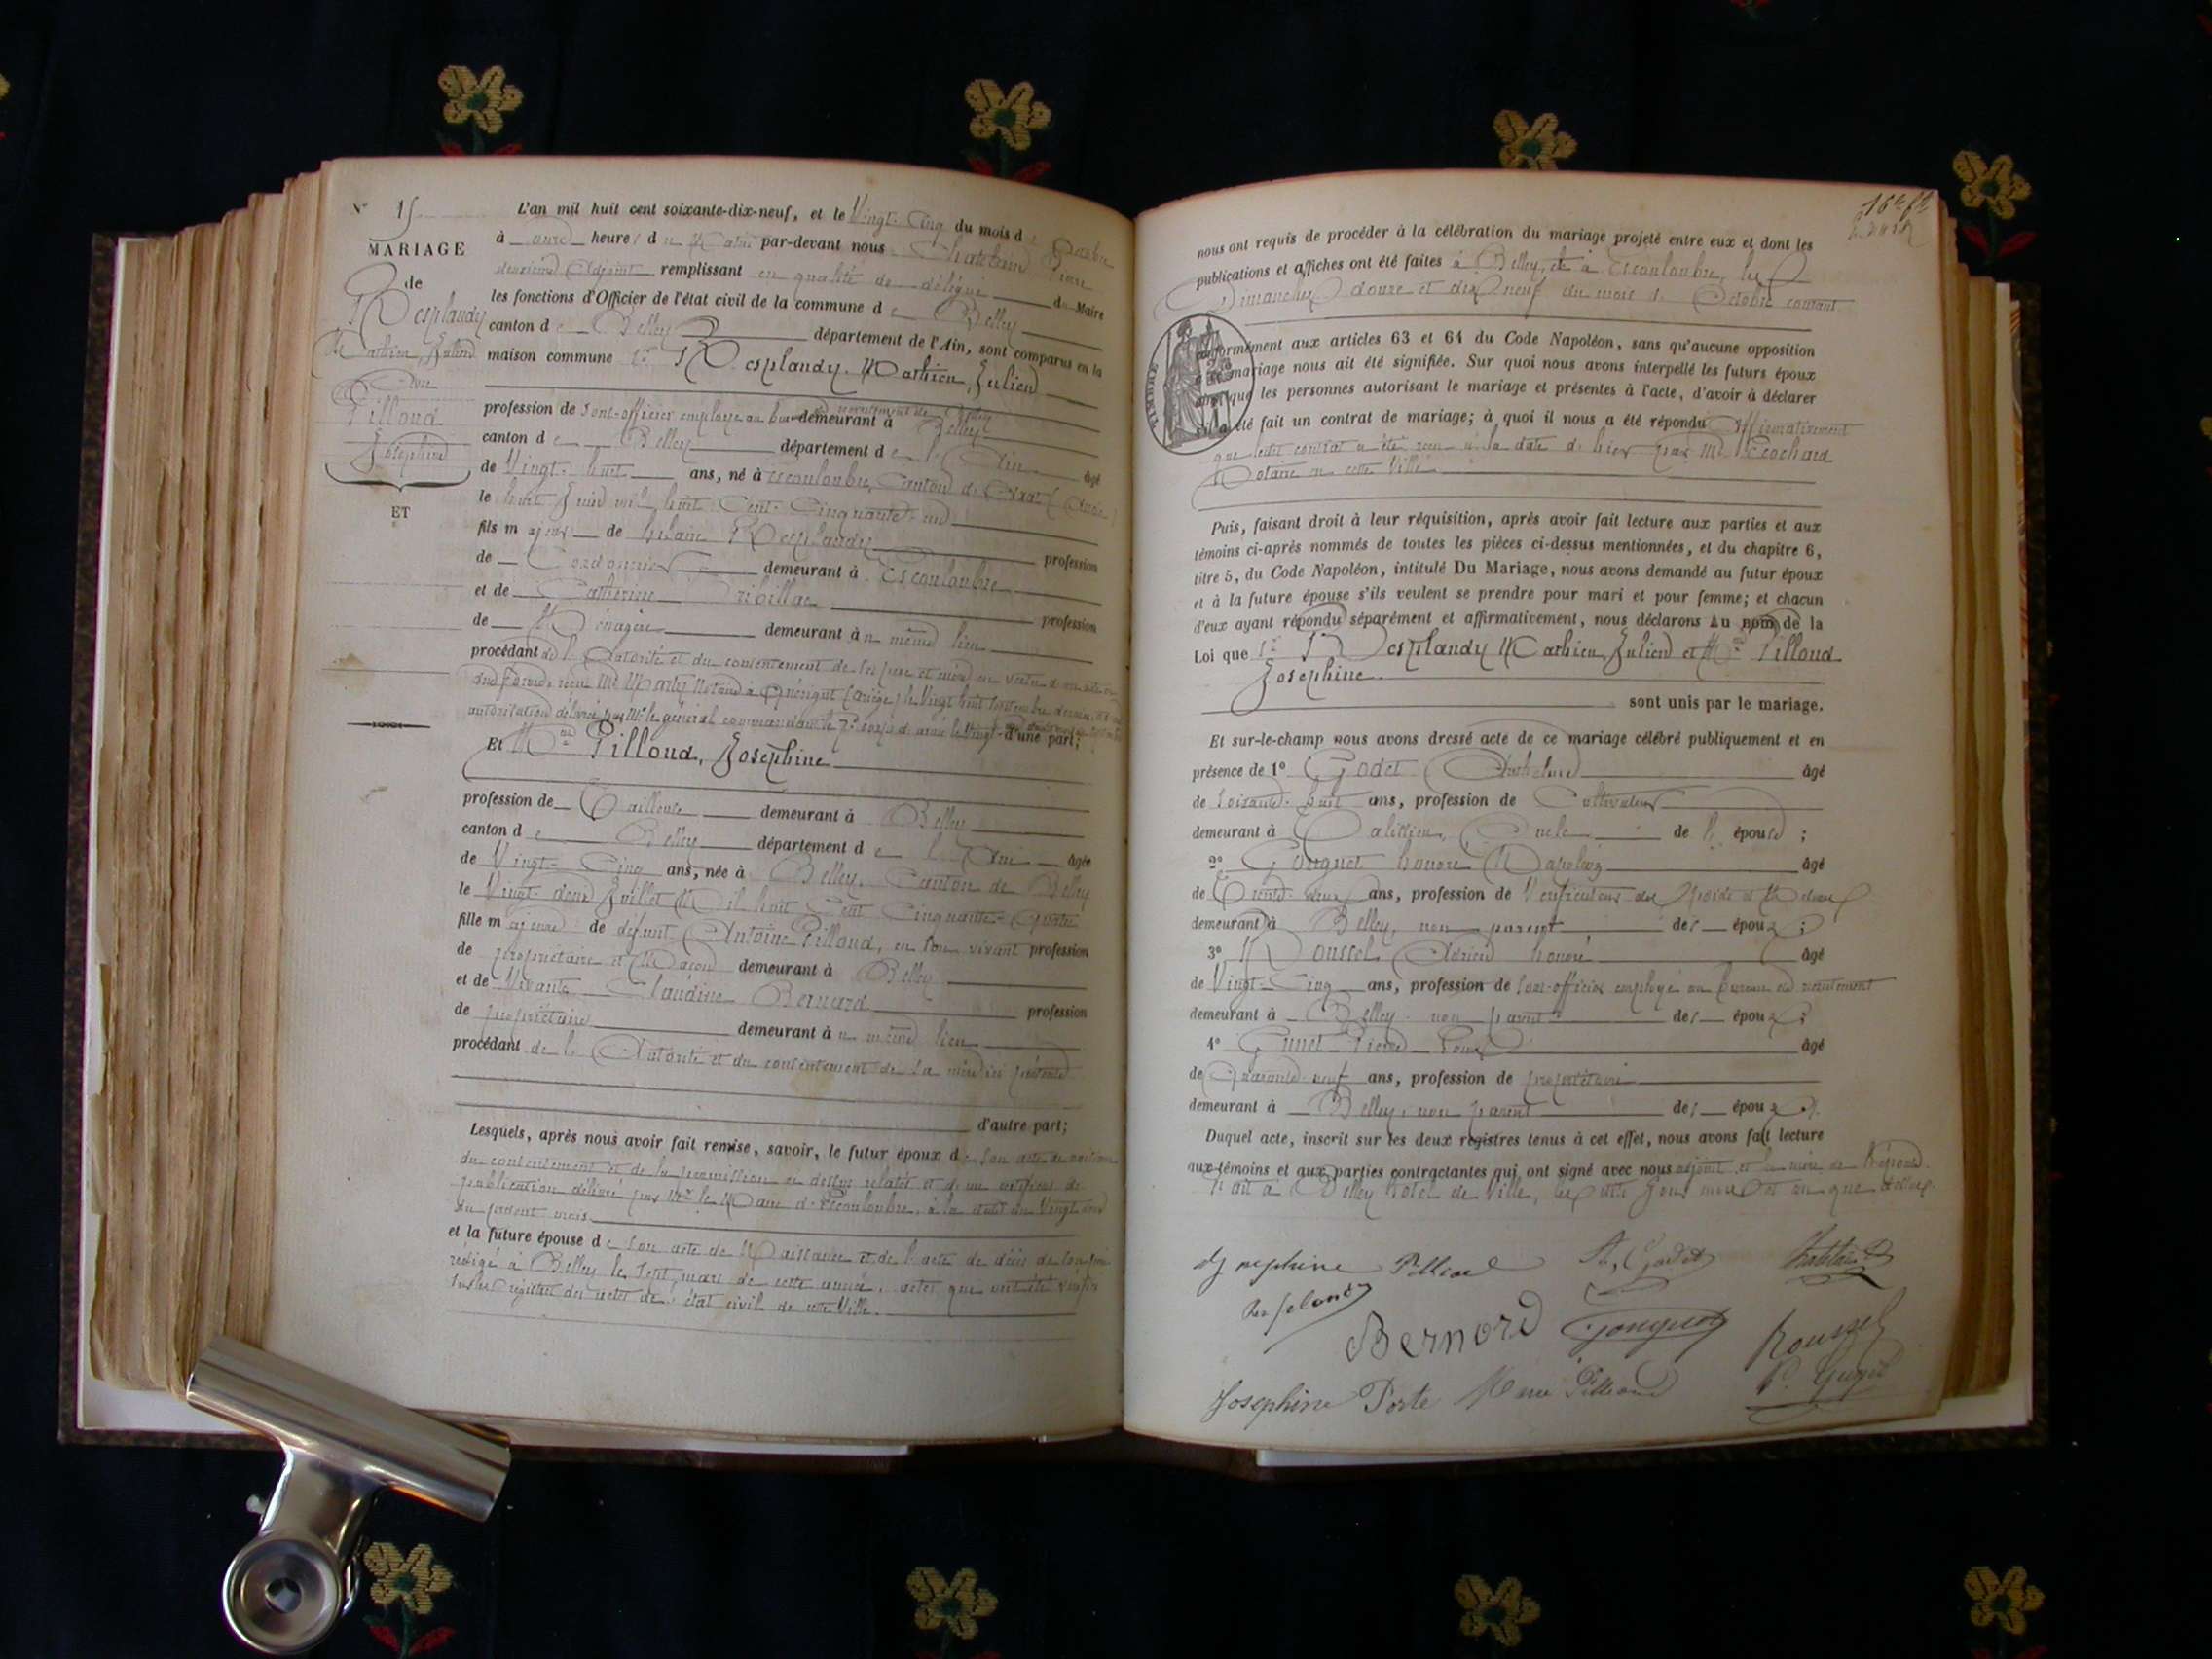 15
MARIAGE
de
Desplandy
Mathieu, Julien
Pilloud
Joséphine
ET
L'an mil huit cent soixante-dix-neuf, et le Vingt-Cinq du mois d'Octobre
à onze heures du Matin par-devant nous Chatelain
deuxième Adjoint remplissant en qualité de délégué du Maire
les fonctions d'Officier de l'état civil de la commune de Belley
canton de Belley département de l'Ain, sont comparus en la
maison commune Sr Desplandy Mathieu, Julien
profession de Sous-officier employé au bureau de recrutement de Belley demeurant à Belley
canton de Belley département de l'Ain âgé
de Vingt-huit ans, né à Escouloubre, Canton d'Axat (Aude)
le huit Juin mil huit Cent Cinquante-un
fils majeur de hilaire Desplandy profession
de Cordonnier demeurant à Escouloubre
et de Catherine Tribillac profession
de Ménagère demeurant à même lieu
procédant de l'Autorité et du consentement de ses père et mère en vertu d'un acte
reçu Me Marty Notaire à Quérigut (ariège) le Vingt huit Septembre dernier,
autorisation délivrée par Mr le général commandant le 7e corps d'armée le Vingt d'une part;
Et Melle Pilloud, Joséphine
profession de Tailleuse demeurant à Belley
canton de Belley département de l'Ain âgée
de Vingt-Cinq ans, née à Belley, Canton de Belley
le Vingt-deux Juillet Mil huit Cent Cinquante-Quatre
fille majeure de défunt Antoine Pilloud, en son vivant profession
de propriétaire et Maçon demeurant à Belley
et de Vivante Claudine Bernard profession
de propriétaire demeurant à même lieu
procédant de l'Autorité et du consentement de sa mère ici présente
d'autre part;
Lesquels, après nous avoir fait remise, savoir, le futur époux de son acte de naissance
du consentement et de la permission ci dessus relatés et d'un certificat de
publication délivré par Mr le Maire d'Escouloubre, à la date du Vingt
du présent mois
et la future épouse de son acte de Naissance et de l'acte de décès de son père
rédigé à Belley le Sept mars de cette année, actes que ont été vérifiés
sur les registres des actes de l'état civil de cette Ville.
nous ont requis de procéder à la célébration du mariage projeté entre eux et dont les
publications et affiches ont été faites à Belley, et à Escouloubre, les
Dimanches douze et dix neuf du mois d'Octobre courant
TIMBRE
conformément aux articles 63 et 64 du Code Napoléon, sans qu'aucune opposition
à ce mariage nous ait été signifiée. Sur quoi nous avons interpellé les futurs époux
ainsi que les personnes autorisant le mariage et présentes à l'acte, d'avoir à déclarer
s'il a été fait un contrat de mariage; à quoi il nous a été répondu Affirmativement
que ledit contrat a été reçu à la date d'hier par Me Pécochard
Notaire en cette Ville
Puis, faisant droit à leur réquisition, après avoir fait lecture aux parties et aux
témoins ci-après nommés de toutes les pièces ci-dessus mentionnées, et du chapitre 6,
titre 5, du Code Napoléon, intitulé Du Mariage, nous avons demandé au futur époux
et à la future épouse s'ils veulent se prendre pour mari et pour femme; et chacun
d'eux ayant répondu séparément et affirmativement, nous déclarons Au nom de la
Loi que Sr Desplandy Mathieu, Julien et Melle Pilloud
Joséphine
sont unis par le mariage.
Et sur-le-champ nous avons dressé acte de ce mariage célébré publiquement et en
présence de 1° Godet Anthelme âgé
de Soixante-huit ans, profession de Cultivateur
demeurant à Talissieu, Oncle de l'épouse;
2° Gouguet honoré Napoléon âgé
de Trente-deux ans, profession de Vérificateur des Poids et Mesures
demeurant à Belley, non parent des époux;
3° Roussel Adrien honoré âgé
de Vingt-Cinq ans, profession de Sous-officier employé au bureau de recrutement
demeurant à Belley non parent des époux;
4° Gunet Pierre Louis âgé
de Quarante-neuf ans, profession de propriétaire
demeurant à Belley, non parent des époux.
Duquel acte, inscrit sur les deux registres tenus à cet effet, nous avons fait lecture
aux témoins et aux parties contractantes qui ont signé avec nous adjoint et la mère de l'épouse.
Fait à Belley hôtel de Ville, les dits jour mois et an que dessus.
Josephine Pilloud A, Godet Chatelain
Desplandy
Bernard Gouguet Roussel
Josephine Porte Marie Pilloud P. Gunet